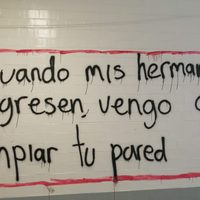 uando mis herman
gresen, vengo a
mpiar tu pared